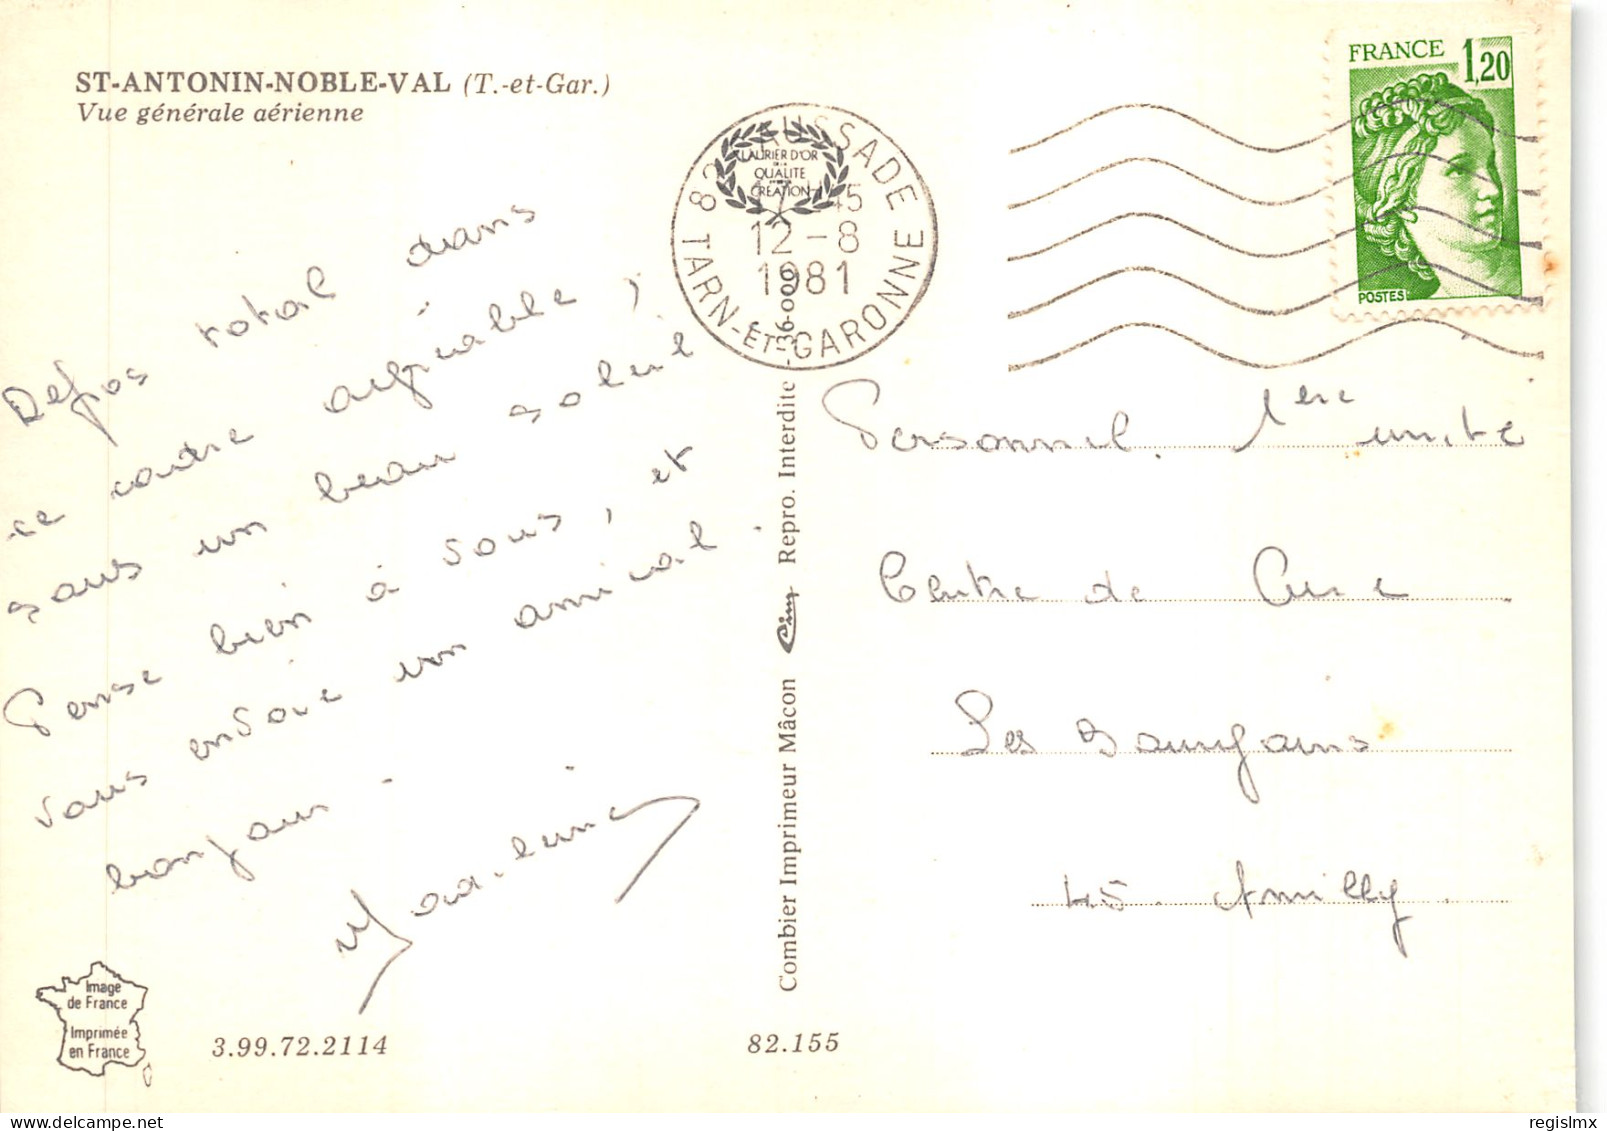 ST-ANTONIN-NOBLE-VAL (T.-et-Gar.)
Vue générale aérienne
Repos total dans
ce cadre agréable,
sous un beau soleil
Pense bien à vous, et
vous envoie un amical
bonjour.
82 CAUSSADE
12-8
1981
TARN-ET-GARONNE
LAURIER D'OR
DE LA
QUALITÉ
CRÉATION
FRANCE 1,20
POSTES
Personnel 1ère unité
Centre de Cure
Les
45. Amilly
Combier Imprimeur Mâcon Cim Repro. Interdite -36-0009
Image
de France
Imprimée
en France
3.99.72.2114
82.155
regislmx